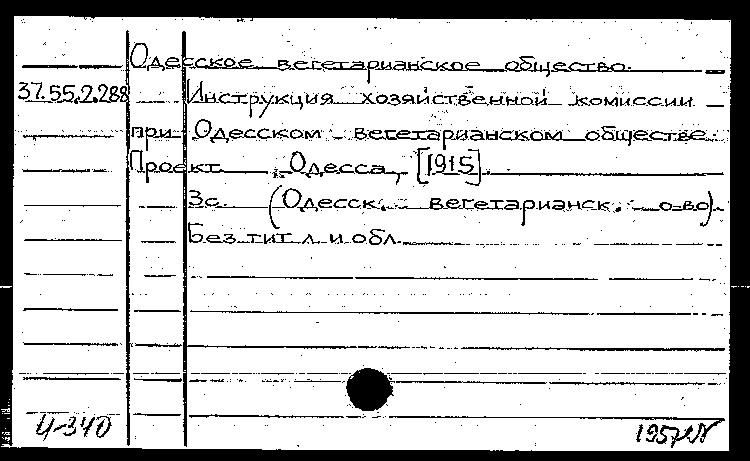 Одесское вегетарианское общество.
37.55.2.288 Инструкция хозяйственной комиссии
при Одесском вегетарианском обществе.
Проект. Одесса, [1915].
3с. (Одесск. вегетарианск. о-во).
Без тит. л. и обл.
4-340
1957